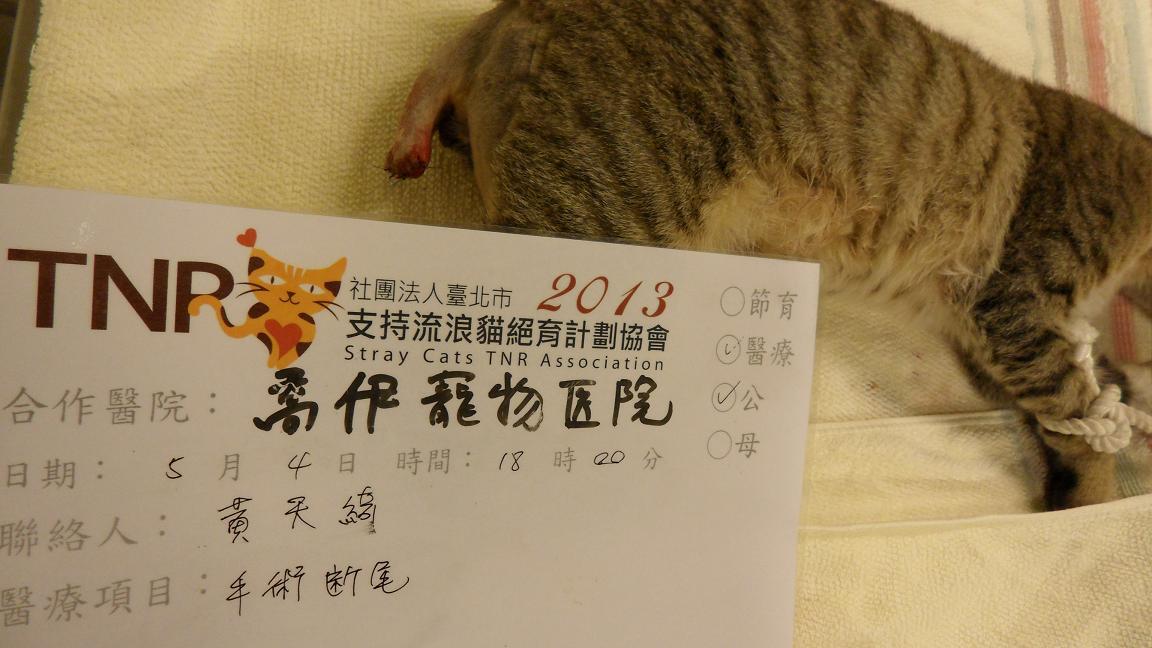 TNR
社團法人臺北市 2013
支持流浪貓絕育計劃協會
Stray Cats TNR Association
合作醫院：喬伊寵物医院
日期：5月4日 時間：18時00分
聯絡人：黃天綺
醫療項目：手術断尾
節育
醫療
公
母